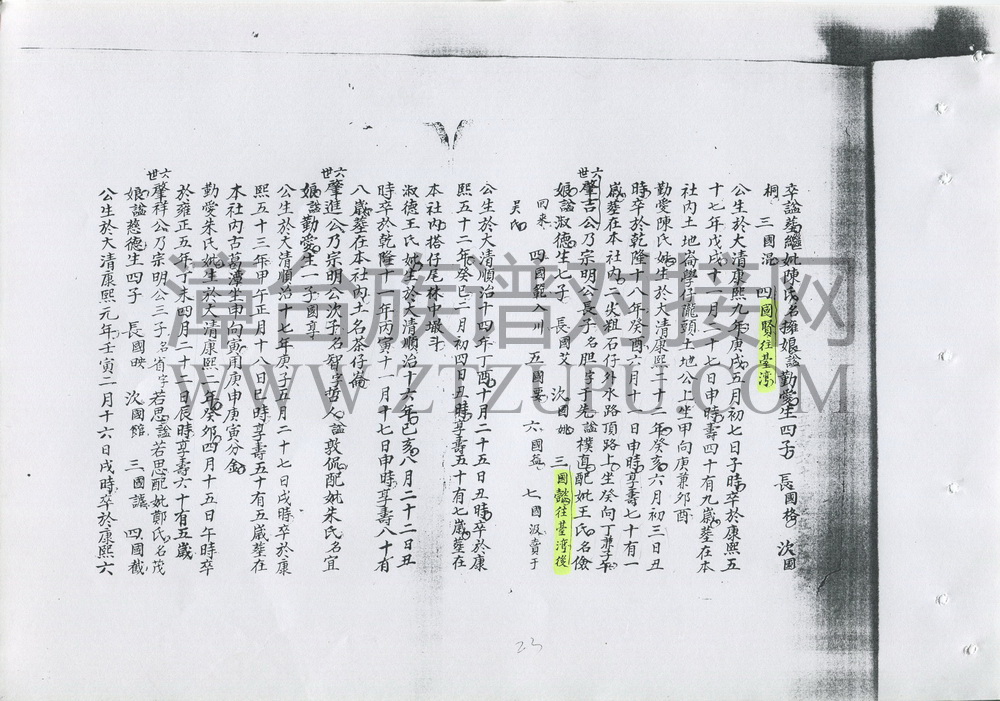 卒諡基繼妣陳氏名擁娘諡勤愛生四子 長國格 次國
桐 三國混 四國賢往臺灣
公生於大清康熙九年庚戌五月初七日子時卒於康熙五
十七年戊戌十一月二十七日申時壽四十有九歲葬在本
社內土地崙學仔隴頭土地公上坐甲向庚兼夘酉
勤愛陳氏妣生於大清康熙二十二年癸亥六月初三日丑
時卒於乾隆十八年癸酉六月十一日申時享壽七十有一
歲葬在本社內二尖粗石仔外水路頂路上坐癸向丁兼子午
六世肇吉公乃宗明公長子名胆字子先諡樸直配妣王氏名儉
娘諡淑德生七子 長國艾 次國姚 三國懿往臺灣後
回來 四國範入川 五國要 六國益 七國汲賣于
吳氏
公生於大清順治十四年丁酉十月二十五日丑時卒於康
熙五十二年癸巳二月初四日丑時享壽五十有七歲葬在
本社內搭仔尾林中塓斗
淑德王氏妣生於大清順治十六年己亥八月二十二日丑
時卒於乾隆十一年丙寅十一月十七日申時享壽八十有
八歲葬在本社內土名茶仔崙
六世肇進公乃宗明公次子名智字哲人諡敦侃配妣朱氏名宜
娘諡勤愛生一子國享
公生於大清順治十七年庚子五月二十七日戌時卒於康
熙五十三年甲午正月十八日巳時享壽五十有五歲葬在
本社內古葛潭坐申向寅用庚申庚寅分金
勤愛朱氏妣生於大清康熙二年癸夘四月十五日午時卒
於雍正五年丁未四月二十二日辰時享壽六十有五歲
六世肇祥公乃宗明公三子名省字若思諡若思配妣鄭氏名茂
娘諡慈德生四子 長國映 次國館 三國議 四國截
公生於大清康熙元年壬寅二月十六日戌時卒於康熙六
23
漳台族譜对接网
WWW.ZTZUPU.COM